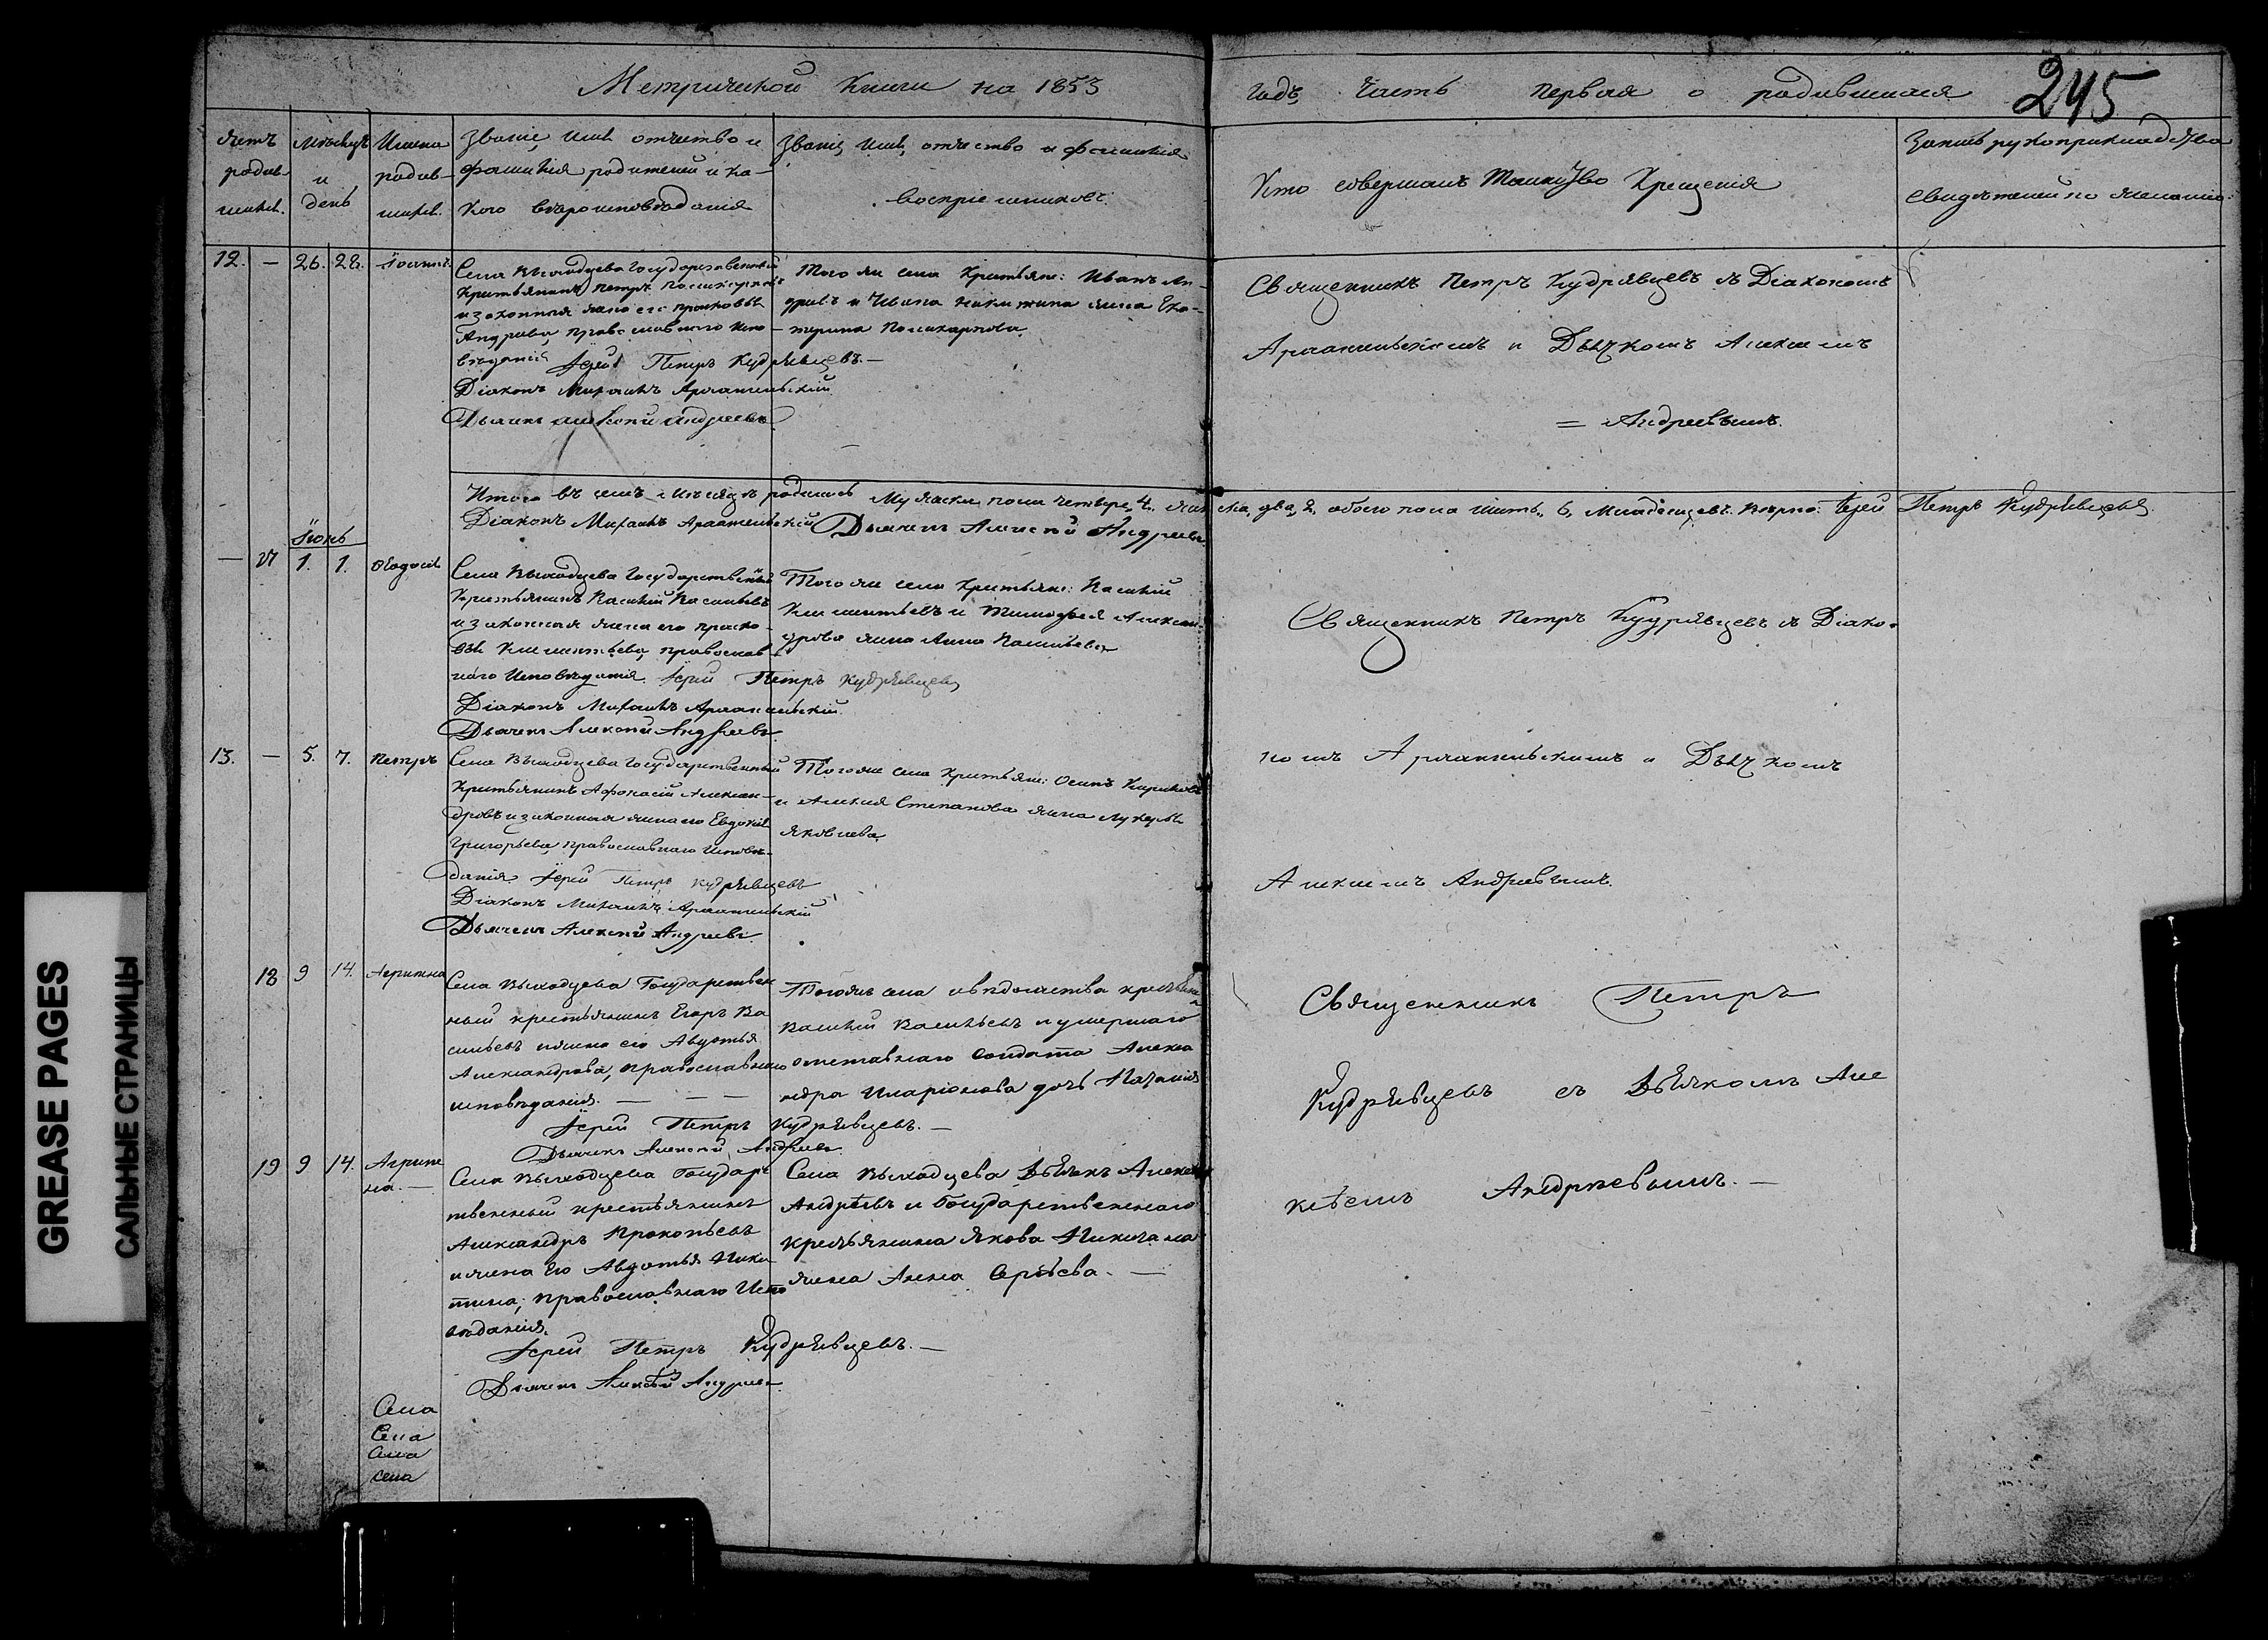 Метрической Книги на 1853
годъ, Часть первая о родившихся
245
Счетъ родив-шихся.
Мѣсяцъ и день
Имена родив-шихся.
Званіе, имя отчество и
фамилія родителей и ка-
кого вѣроисповѣданія
Званіе, имя, отчество и фамилія
воспріемниковъ.
Кто совершалъ таинство Крещенія
рукоприкладства
свидѣтелей по желанію
12. — 26. 28. Іоаннъ.
Села Выходцева Государственный
Крестьянинъ Петръ Поликарповъ
и законная жена его Прасковья
Андреева, православнаго испо-
вѣданія Іерей Петръ Кудрявцевъ. —
Діаконъ Михаилъ Архангельскій
Дьячекъ Алексѣй Андреевъ
Того же села Крестьяне: Иванъ Ан-
дреевъ и Ивана Никитина жена Ека-
терина Поликарпова
Священникъ Петръ Кудрявцевъ съ Діакономъ
Архангельскимъ и Дьячкомъ Алексѣемъ
= Андреевымъ.
Итого въ семъ мѣсяцѣ родилось мужеска пола четыре, 4, женска, два, 2, обоего пола шесть, 6, младенцевъ. Іерей Петръ Кудрявцевъ
Діаконъ Михаилъ Архангельскій Дьячекъ Алексѣй Андреевъ
Іюнь
— 17 1. 1.
Села Выходцева Государственный
Крестьянинъ Василій Васильевъ
и законная жена его Праско-
вья Климентьева, православ-
наго Исповѣданія Іерей Петръ Кудрявцевъ
Діаконъ Михаилъ Архангельскій.
Дьячекъ Алексѣй Андреевъ
Того же села Крестьяне: Василій
Климентьевъ и Тимофея Алексан-
дрова жена Анна Васильева
Священникъ Петръ Кудрявцевъ съ Діако-
номъ Архангельскимъ и Дьячкомъ
Алексѣемъ Андреевымъ.
13. — 5. 7. Петръ
Села Выходцева Государственный
Крестьянинъ Афонасій Алексан-
дровъ и законная жена его Евдокія
Григорьева, православнаго Исповѣ-
данія. Іерей Петръ Кудрявцевъ
Діаконъ Михаилъ Архангельскій
Дьячекъ Алексѣй Андреевъ.
Того же села Крестьяне: Осипъ Кириловъ
и Алексѣя Степанова жена Лукерья
Яковлева
18 9 14. Агрипена
Села Выходцева Государствен
ный крестьянинъ Егоръ Ва
сильевъ и жена его Авдотья
Александрова, православнаго
исповѣданія. — — —
Іерей Петръ Кудрявцевъ. —
Дьячекъ Алексѣй Андреевъ
Тогожъ села и вѣдомства крестьянинъ
Василій Васильевъ и умершаго
отставнаго солдата Алекса
ндра Иларіонова дочь Наталія
Священникъ Петръ
Кудрявцевъ съ Дьячкомъ Але
ксѣемъ Андреевымъ. —
19 9 14. Агрипе
на. —
Села Выходцева Государс
твенный крестьянинъ
Александръ Прокопьевъ
и жена его Авдотья Ники
тина, православнаго Испо
вѣданія.
Іерей Петръ Кудрявцевъ. —
Дьячекъ Алексѣй Андреевъ
Села Выходцева Дьячекъ Алексѣй
Андреевъ и Государственнаго
крестьянина Якова
жена Анна Сергѣева. —
Села
Села
Села
села
GREASE PAGES
САЛЬНЫЕ СТРАНИЦЫ